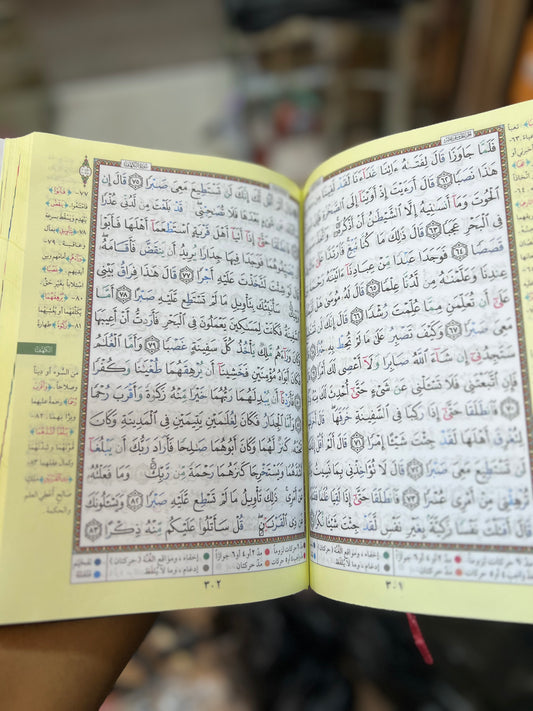 فَلَمَّا جَاوَزَا قَالَ لِفَتَىٰهُ ءَاتِنَا غَدَآءَنَا لَقَدْ لَقِينَا مِن سَفَرِنَا
هَٰذَا نَصَبًا ٦٢ قَالَ أَرَءَيْتَ إِذْ أَوَيْنَآ إِلَى ٱلصَّخْرَةِ فَإِنِّى نَسِيتُ
ٱلْحُوتَ وَمَآ أَنسَىٰنِيهُ إِلَّا ٱلشَّيْطَٰنُ أَنْ أَذْكُرَهُۥ وَٱتَّخَذَ سَبِيلَهُۥ
فِى ٱلْبَحْرِ عَجَبًا ٦٣ قَالَ ذَٰلِكَ مَا كُنَّا نَبْغِ فَٱرْتَدَّا عَلَىٰٓ ءَاثَارِهِمَا
قَصَصًا ٦٤ فَوَجَدَا عَبْدًا مِّنْ عِبَادِنَآ ءَاتَيْنَٰهُ رَحْمَةً مِّنْ
عِندِنَا وَعَلَّمْنَٰهُ مِن لَّدُنَّا عِلْمًا ٦٥ قَالَ لَهُۥ مُوسَىٰ هَلْ أَتَّبِعُكَ
عَلَىٰٓ أَن تُعَلِّمَنِ مِمَّا عُلِّمْتَ رُشْدًا ٦٦ قَالَ إِنَّكَ لَن تَسْتَطِيعَ
مَعِىَ صَبْرًا ٦٧ وَكَيْفَ تَصْبِرُ عَلَىٰ مَا لَمْ تُحِطْ بِهِۦ خُبْرًا ٦٨ قَالَ
سَتَجِدُنِىٓ إِن شَآءَ ٱللَّهُ صَابِرًا وَلَآ أَعْصِى لَكَ أَمْرًا ٦٩ قَالَ
فَإِنِ ٱتَّبَعْتَنِى فَلَا تَسْـَٔلْنِى عَن شَىْءٍ حَتَّىٰٓ أُحْدِثَ لَكَ مِنْهُ ذِكْرًا
٧٠ فَٱنطَلَقَا حَتَّىٰٓ إِذَا رَكِبَا فِى ٱلسَّفِينَةِ خَرَقَهَا قَالَ أَخَرَقْتَهَا
لِتُغْرِقَ أَهْلَهَا لَقَدْ جِئْتَ شَيْـًٔا إِمْرًا ٧١ قَالَ أَلَمْ أَقُلْ إِنَّكَ
لَن تَسْتَطِيعَ مَعِىَ صَبْرًا ٧٢ قَالَ لَا تُؤَاخِذْنِى بِمَا نَسِيتُ وَلَا
تُرْهِقْنِى مِنْ أَمْرِى عُسْرًا ٧٣ فَٱنطَلَقَا حَتَّىٰٓ إِذَا لَقِيَا غُلَٰمًا فَقَتَلَهُۥ
قَالَ أَقَتَلْتَ نَفْسًا زَكِيَّةًۢ بِغَيْرِ نَفْسٍ لَّقَدْ جِئْتَ شَيْـًٔا نُّكْرًا ٧٤
٣٠١
سُورَةُ الكَهْفِ
قَالَ أَلَمْ أَقُل لَّكَ إِنَّكَ لَن تَسْتَطِيعَ مَعِىَ صَبْرًا ٧٥ قَالَ إِن
سَأَلْتُكَ عَن شَىْءٍۭ بَعْدَهَا فَلَا تُصَٰحِبْنِى قَدْ بَلَغْتَ مِن لَّدُنِّى عُذْرًا
٧٦ فَٱنطَلَقَا حَتَّىٰٓ إِذَآ أَتَيَآ أَهْلَ قَرْيَةٍ ٱسْتَطْعَمَآ أَهْلَهَا فَأَبَوْا۟
أَن يُضَيِّفُوهُمَا فَوَجَدَا فِيهَا جِدَارًا يُرِيدُ أَن يَنقَضَّ فَأَقَامَهُۥ
قَالَ لَوْ شِئْتَ لَتَّخَذْتَ عَلَيْهِ أَجْرًا ٧٧ قَالَ هَٰذَا فِرَاقُ بَيْنِى
وَبَيْنِكَ سَأُنَبِّئُكَ بِتَأْوِيلِ مَا لَمْ تَسْتَطِع عَّلَيْهِ صَبْرًا ٧٨ أَمَّا
ٱلسَّفِينَةُ فَكَانَتْ لِمَسَٰكِينَ يَعْمَلُونَ فِى ٱلْبَحْرِ فَأَرَدتُّ أَنْ أَعِيبَهَا
وَكَانَ وَرَآءَهُم مَّلِكٌ يَأْخُذُ كُلَّ سَفِينَةٍ غَصْبًا ٧٩ وَأَمَّا ٱلْغُلَٰمُ
فَكَانَ أَبَوَاهُ مُؤْمِنَيْنِ فَخَشِينَآ أَن يُرْهِقَهُمَا طُغْيَٰنًا وَكُفْرًا
٨٠ فَأَرَدْنَآ أَن يُبْدِلَهُمَا رَبُّهُمَا خَيْرًا مِّنْهُ زَكَوٰةً وَأَقْرَبَ رُحْمًا
٨١ وَأَمَّا ٱلْجِدَارُ فَكَانَ لِغُلَٰمَيْنِ يَتِيمَيْنِ فِى ٱلْمَدِينَةِ وَكَانَ
تَحْتَهُۥ كَنزٌ لَّهُمَا وَكَانَ أَبُوهُمَا صَٰلِحًا فَأَرَادَ رَبُّكَ أَن يَبْلُغَآ
أَشُدَّهُمَا وَيَسْتَخْرِجَا كَنزَهُمَا رَحْمَةً مِّن رَّبِّكَ وَمَا فَعَلْتُهُۥ
عَنْ أَمْرِى ذَٰلِكَ تَأْوِيلُ مَا لَمْ تَسْطِع عَّلَيْهِ صَبْرًا ٨٢ وَيَسْـَٔلُونَكَ
عَن ذِى ٱلْقَرْنَيْنِ قُلْ سَأَتْلُوا۟ عَلَيْكُم مِّنْهُ ذِكْرًا ٨٣
٣٠٢
الكهف